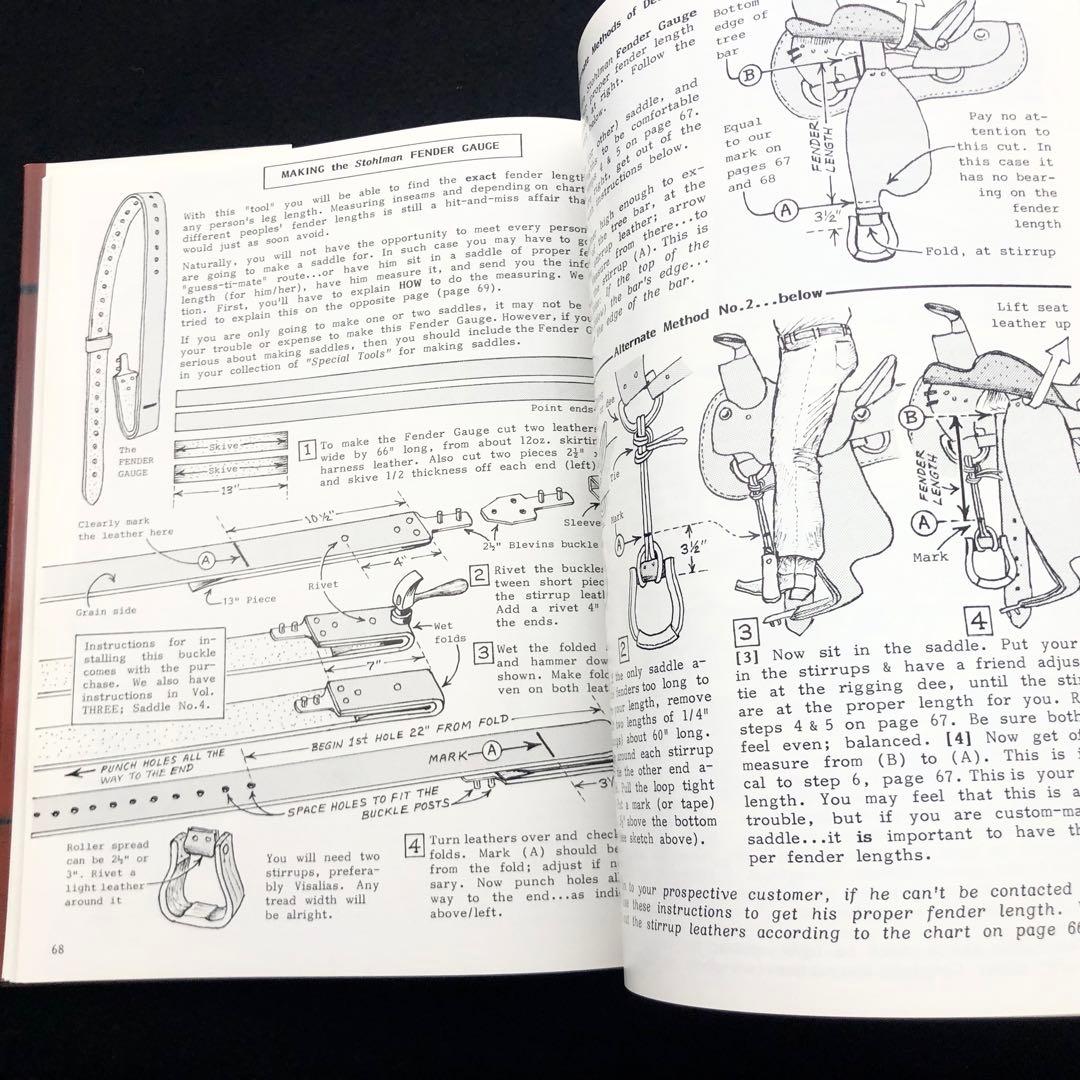 MAKING the Stohlman FENDER GAUGE
With this "tool" you will be able to find the exact fender length
any person's leg length. Measuring inseams and depending on chart
different peoples' fender lengths is still a hit-and-miss affair tha
would just as soon avoid.
Naturally, you will not have the opportunity to meet every person
are going to make a saddle for. In such case you may have to go
"guess-ti-mate" route...or have him sit in a saddle of proper fe
length (for him/her), have him measure it, and send you the info
tion. First, you'll have to explain HOW to do the measuring. We
tried to explain this on the opposite page (page 69).
If you are only going to make one or two saddles, it may not be
your trouble or expense to make this Fender Gauge. However, if you
serious about making saddles, then you should include the Fender G
in your collection of "Special Tools" for making saddles.
Point ends
The
FENDER
GAUGE
Skive
Skive
13"
1 To make the Fender Gauge cut two leathers
wide by 66" long, from about 12oz. skirtin
harness leather. Also cut two pieces 2½"
and skive 1/2 thickness off each end (left)
Clearly mark
the leather here
10½"
4"
Sleeve
2½" Blevins buckle
A
Rivet
Grain side
13" Piece
2 Rivet the buckles
tween short piec
the stirrup leat
Add a rivet 4"
the ends.
Wet
folds
Instructions for in-
stalling this buckle
comes with the pur-
chase. We also have
instructions in Vol.
THREE; Saddle No.4.
7"
3 Wet the folded
and hammer dow
shown. Make fol
ven on both leat
BEGIN 1st HOLE 22" FROM FOLD
PUNCH HOLES ALL THE
WAY TO THE END
MARK A
SPACE HOLES TO FIT THE
BUCKLE POSTS
Roller spread
can be 2½" or
3". Rivet a
light leather
around it
You will need two
stirrups, prefera-
bly Visalias. Any
tread width will
be alright.
4 Turn leathers over and check
folds. Mark (A) should be
from the fold; adjust if n
sary. Now punch holes al
way to the end...as indi
above/left.
68
Methods of
Stohlman Fender Gauge
proper fender length
at right. Follow the
below.
other) saddle, and
to be comfortable
4 & 5 on page 67.
right, get out of the
instructions below.
high enough to ex-
the tree bar, at the
stirrup leather; arrow
from there...to
stirrup (A). This is
the top of the
the bar's edge...
edge of the bar.
Bottom
edge of
tree
bar
B
Equal
to our
mark on
pages 67
and 68
FENDER
LENGTH
A
3½"
Pay no at-
tention to
this cut. In
this case it
has no bear-
ing on the
fender
length
Fold, at stirrup
Alternate Method No.2...below
Lift seat
leather up
dee
Tie
Mark
A
3½"
B
FENDER
LENGTH
A
Mark
2
the only saddle a-
fenders too long to
your length, remove
two lengths of 1/4"
about 60" long.
around each stirrup
the other end a-
Pull the loop tight
a mark (or tape)
above the bottom
sketch above).
3
4
[3] Now sit in the saddle. Put your
in the stirrups & have a friend adjus
tie at the rigging dee, until the sti
are at the proper length for you. R
steps 4 & 5 on page 67. Be sure both
feel even; balanced. [4] Now get of
measure from (B) to (A). This is i
cal to step 6, page 67. This is your
length. You may feel that this is a
trouble, but if you are custom-ma
saddle...it is important to have th
per fender lengths.
to your prospective customer, if he can't be contacted
these instructions to get his proper fender length.
the stirrup leathers according to the chart on page 66